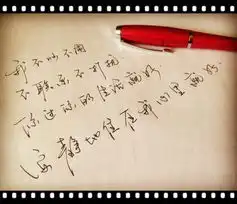 我不吵不闹
不联系不打扰
你过你的生活就好
你静静地住在我心里就好